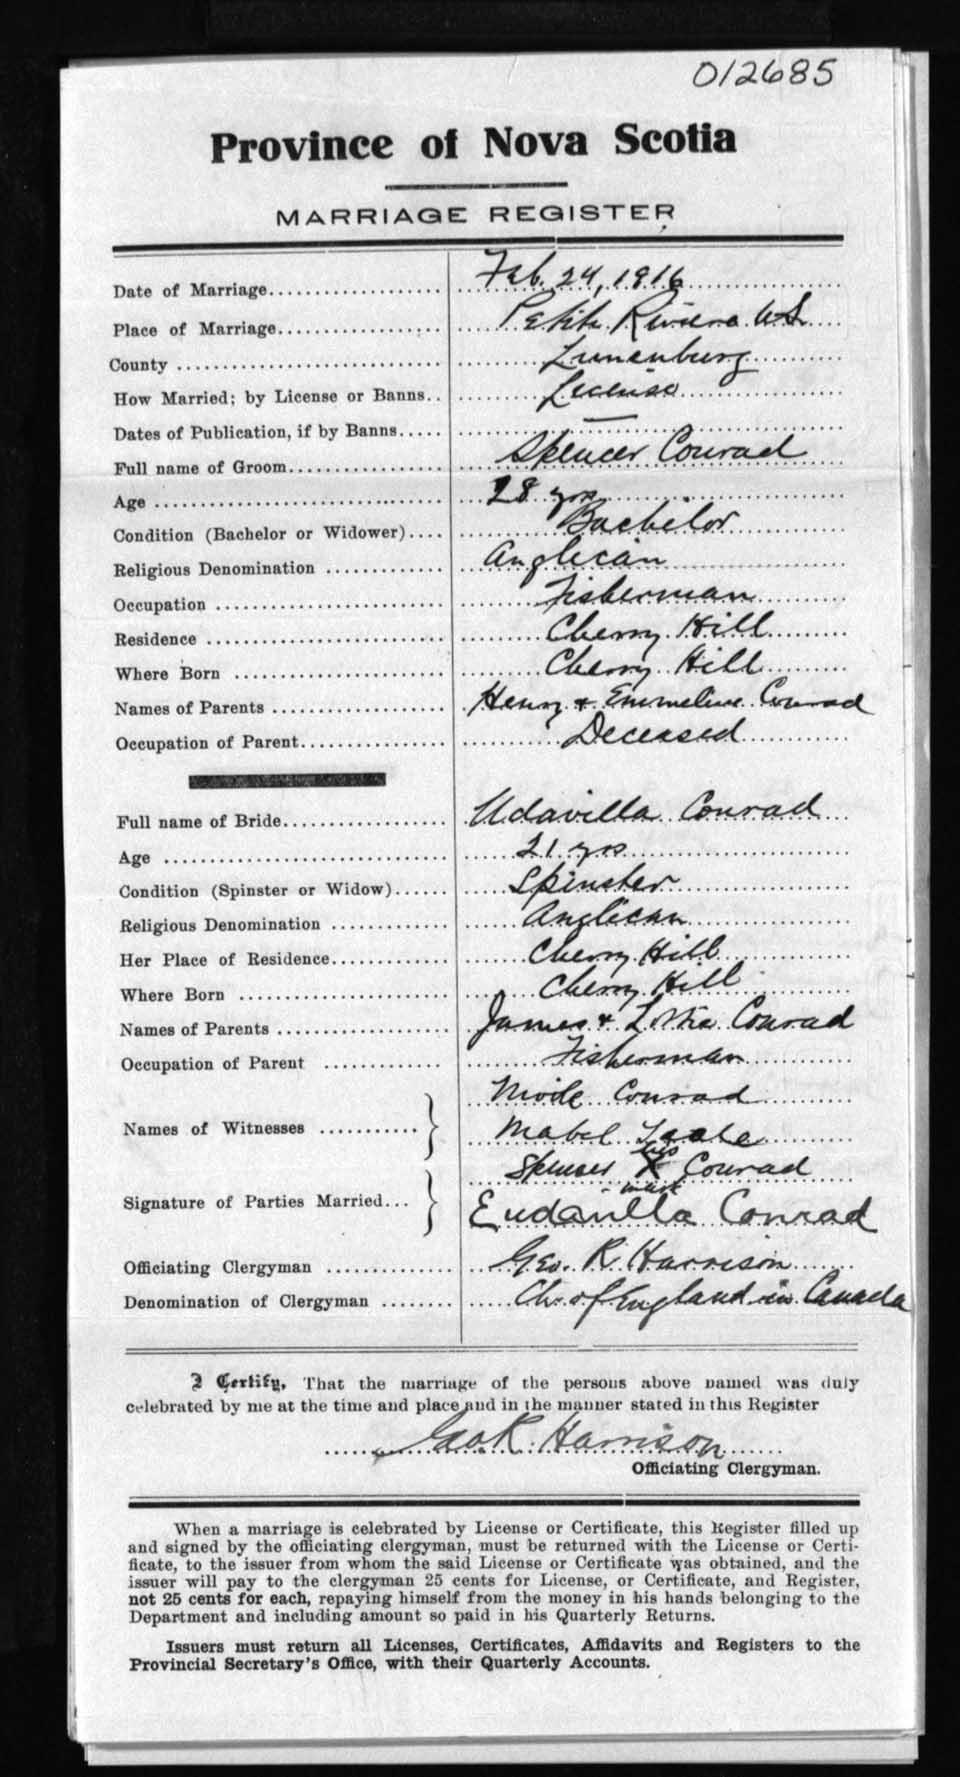 012685
Province of Nova Scotia
MARRIAGE REGISTER
Date of Marriage Feb. 24, 1916
Place of Marriage Petite Riviere N.S.
County Lunenburg
How Married; by License or Banns License
Dates of Publication, if by Banns —
Full name of Groom Spencer Conrad
Age 28 yrs
Condition (Bachelor or Widower) Bachelor
Religious Denomination Anglican
Occupation Fisherman
Residence Cherry Hill
Where Born Cherry Hill
Names of Parents Henry & Emmeline Conrad
Occupation of Parent Deceased
Full name of Bride Udavilla Conrad
Age 21 yrs
Condition (Spinster or Widow) Spinster
Religious Denomination Anglican
Her Place of Residence Cherry Hill
Where Born Cherry Hill
Names of Parents James & Conrad
Occupation of Parent Fisherman
Names of Witnesses Conrad
Mabel
Signature of Parties Married Spencer his X mark Conrad
Eudavilla Conrad
Officiating Clergyman Geo. R. Harrison
Denomination of Clergyman Ch. of England in Canada
I Certify, That the marriage of the persons above named was duly
celebrated by me at the time and place and in the manner stated in this Register
Geo R. Harrison
Officiating Clergyman.
When a marriage is celebrated by License or Certificate, this Register filled up
and signed by the officiating clergyman, must be returned with the License or Certi-
ficate, to the issuer from whom the said License or Certificate was obtained, and the
issuer will pay to the clergyman 25 cents for License, or Certificate, and Register,
not 25 cents for each, repaying himself from the money in his hands belonging to the
Department and including amount so paid in his Quarterly Returns.
Issuers must return all Licenses, Certificates, Affidavits and Registers to the
Provincial Secretary's Office, with their Quarterly Accounts.